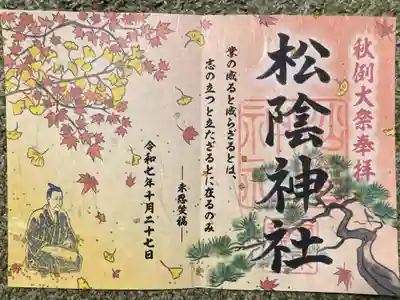 秋例大祭奉拝
松陰神社
業の成ると成らざるとは、
志の立つと立たざるとに在るのみ
──未忍焚稿
令和七年十月二十七日